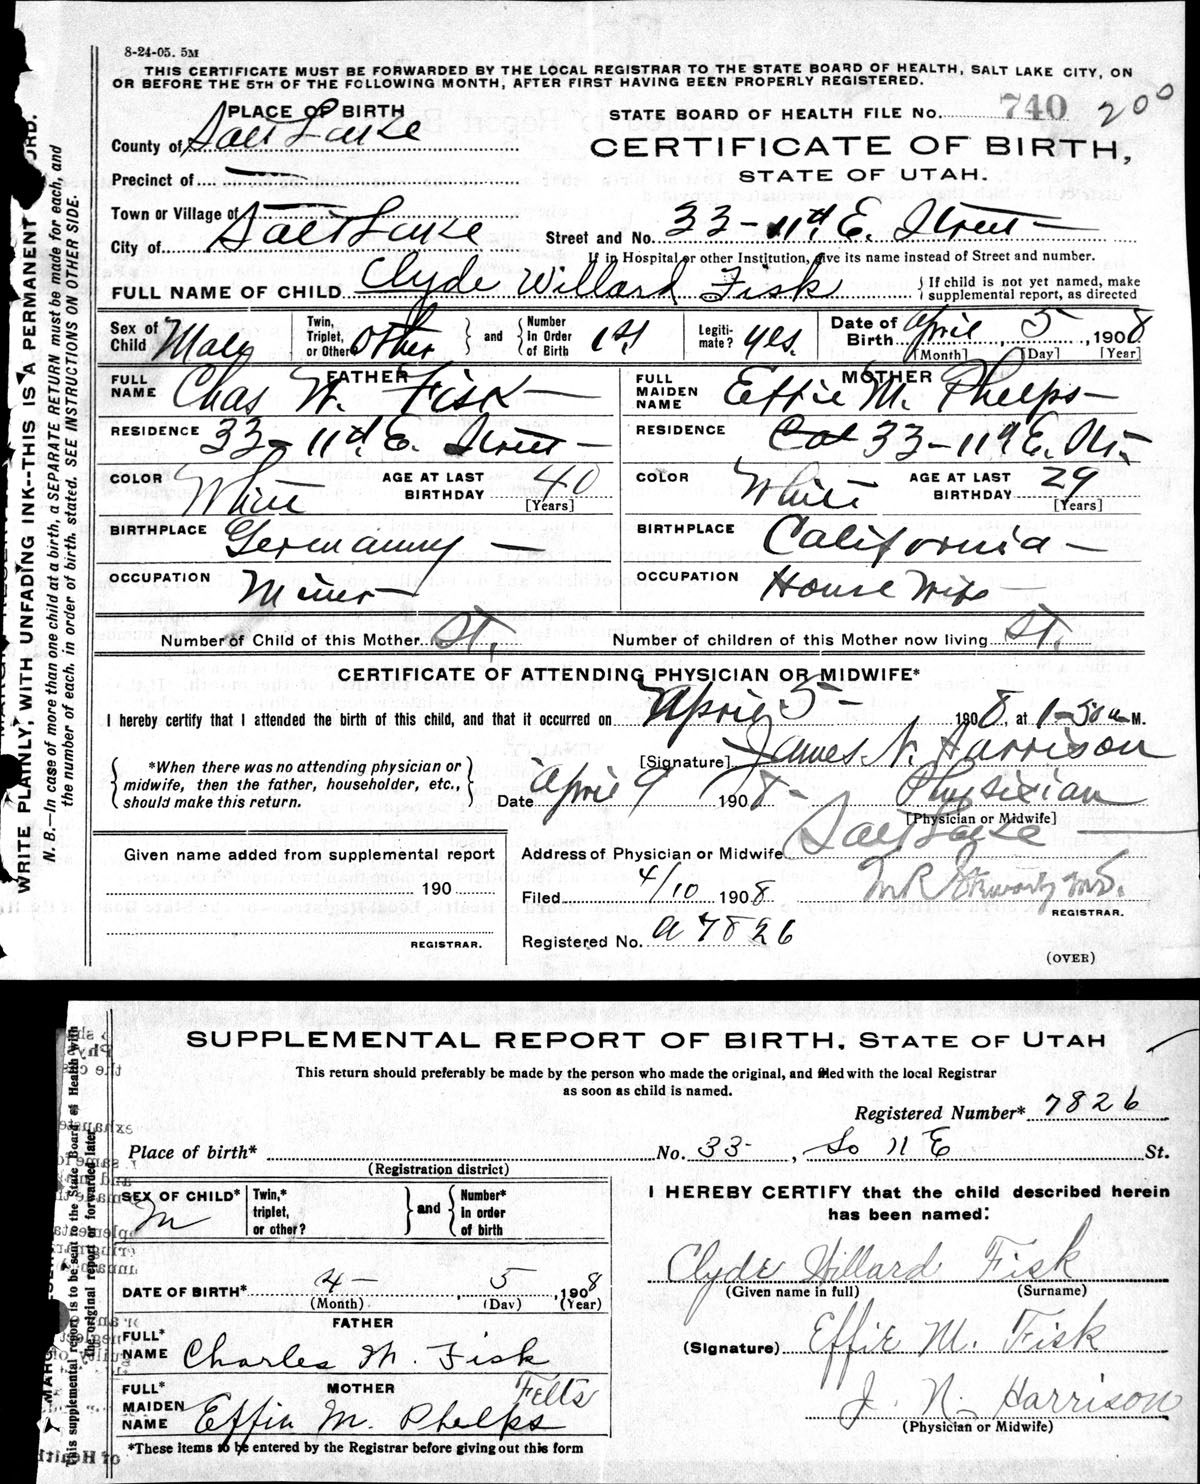 8-24-05. 5M
THIS CERTIFICATE MUST BE FORWARDED BY THE LOCAL REGISTRAR TO THE STATE BOARD OF HEALTH, SALT LAKE CITY, ON
OR BEFORE THE 5TH OF THE FOLLOWING MONTH, AFTER FIRST HAVING BEEN PROPERLY REGISTERED.
PLACE OF BIRTH
STATE BOARD OF HEALTH FILE No. 740 200
County of Salt Lake
CERTIFICATE OF BIRTH,
STATE OF UTAH.
Precinct of
Town or Village of
City of Salt Lake
Street and No. 33 - 11th E. Street
If in Hospital or other Institution, give its name instead of Street and number.
FULL NAME OF CHILD Clyde Willard Fisk
If child is not yet named, make
supplemental report, as directed
Sex of Child Male
Twin, Triplet, or Other? Other
and Number In Order of Birth 1st
Legiti- mate? yes.
Date of Birth April 5 1908
[Month] [Day] [Year]
FATHER
FULL NAME Chas W. Fisk
RESIDENCE 33 - 11th E. Street
COLOR White
AGE AT LAST BIRTHDAY 40
[Years]
BIRTHPLACE Germanny
OCCUPATION Miner
MOTHER
FULL MAIDEN NAME Effie M. Phelps
RESIDENCE 33 - 11th E. St.
COLOR White
AGE AT LAST BIRTHDAY 29
[Years]
BIRTHPLACE California
OCCUPATION House Wife
Number of Child of this Mother
Number of children of this Mother now living
CERTIFICATE OF ATTENDING PHYSICIAN OR MIDWIFE*
I hereby certify that I attended the birth of this child, and that it occurred on April 5 1908, at 1-50 a M.
*When there was no attending physician or
midwife, then the father, householder, etc.,
should make this return.
[Signature] James N. Harrison
Date April 9 1908
Physician
[Physician or Midwife]
Address of Physician or Midwife Salt Lake
Given name added from supplemental report
190
REGISTRAR.
Filed 4/10 1908
M R Stewart M.D.
REGISTRAR.
Registered No. a 7826
(OVER)
WRITE PLAINLY, WITH UNFADING INK--THIS IS A PERMANENT
N. B.—In case of more than one child at a birth, a SEPARATE RETURN must be made for each, and
the number of each, in order of birth, stated. SEE INSTRUCTIONS ON OTHER SIDE.
SUPPLEMENTAL REPORT OF BIRTH, STATE OF UTAH
This return should preferably be made by the person who made the original, and filed with the local Registrar
as soon as child is named.
Registered Number* 7826
Place of birth* No. 33 , So 11 E St.
(Registration district)
SEX OF CHILD* M
Twin,* triplet, or other?
and Number* In order of birth
DATE OF BIRTH* 4 - 5, 1908
(Month) (Day) (Year)
FATHER
FULL* NAME Charles W. Fisk
MOTHER Felts
FULL* MAIDEN NAME Effin M. Phelps
*These items to be entered by the Registrar before giving out this form
I HEREBY CERTIFY that the child described herein
has been named:
Clyde Willard Fisk
(Given name in full) (Surname)
(Signature) Effie M. Fisk
J. N. Harrison
(Physician or Midwife)
This supplemental report is to be sent to the State Board of Health with
the original report or forwarded later